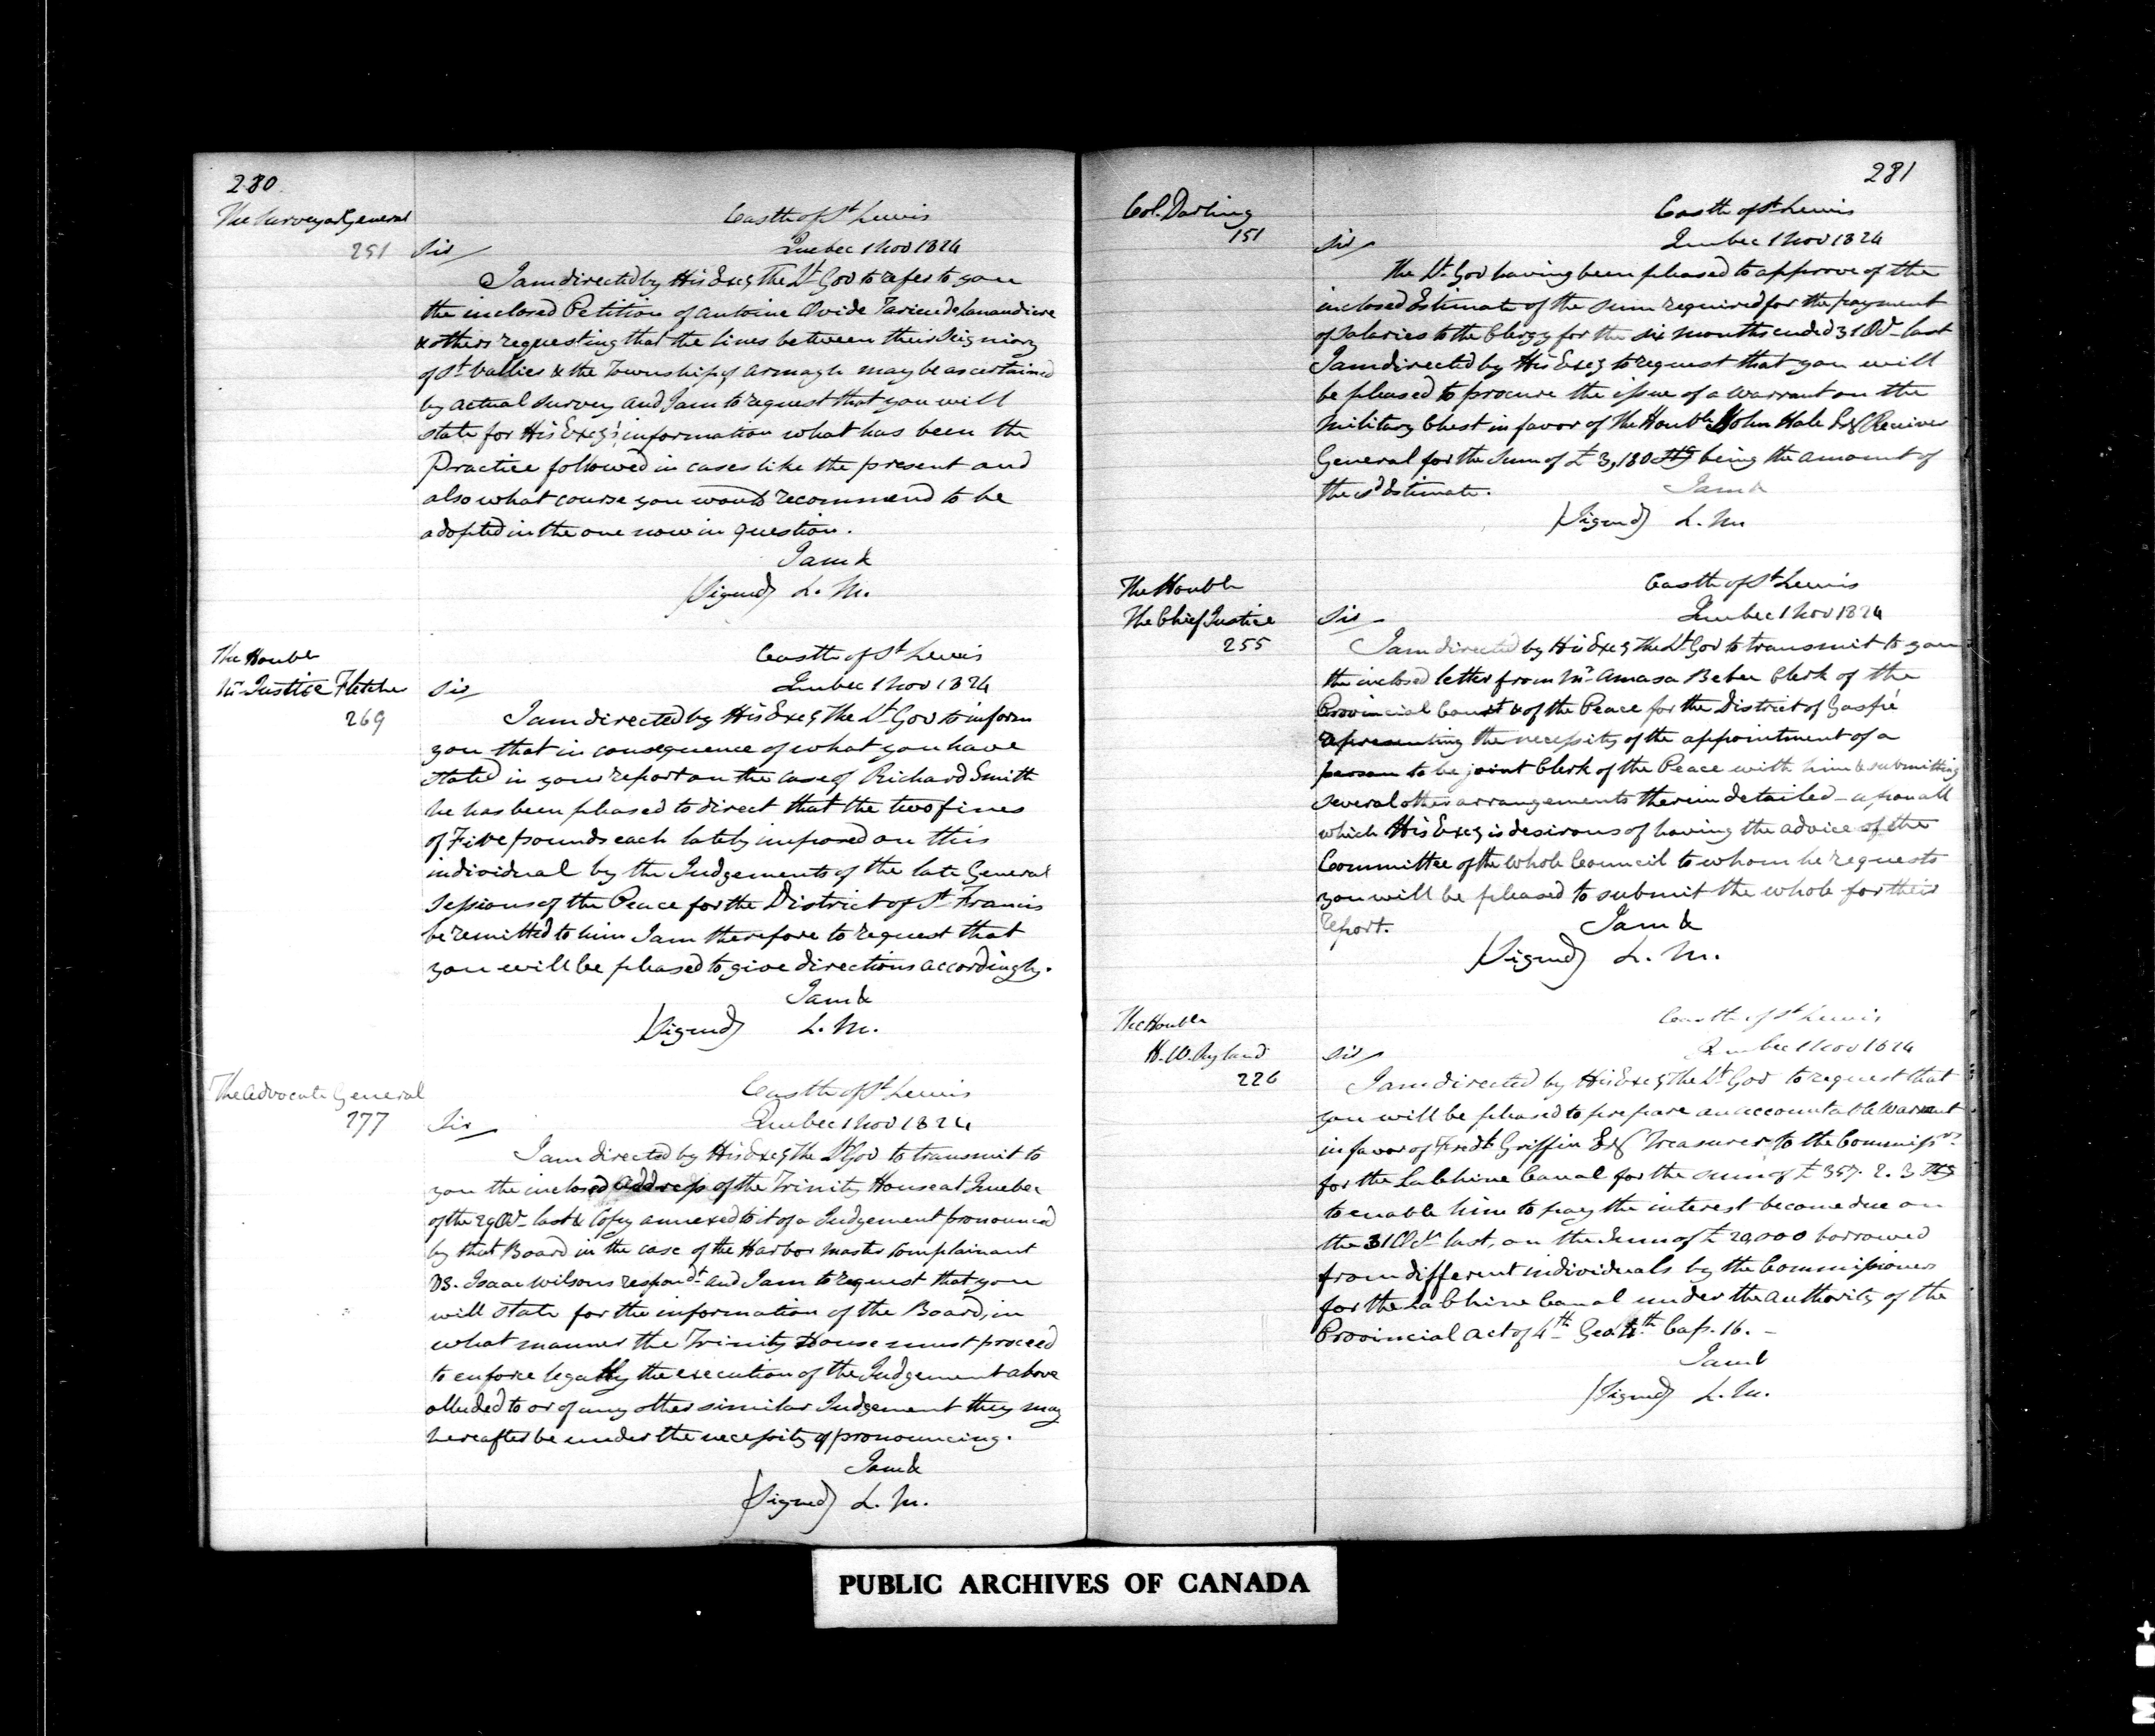 280
The Surveyor General
251
Castle of St Lewis
Quebec 1 Nov 1824
Sir
I am directed by His Excy The Lt Gov to refer to you
the inclosed Petition of Antoine Ovide Tarieu de Lanaudiere
& others requesting that the lines between their Seigniory
of St Vallier & the Township of Armagh may be ascertained
by actual survey and I am to request that you will
state for His Excy's information what has been the
Practice followed in cases like the present and
also what course you would recommend to be
adopted in the one now in question.
I am &
(Signed) L. M.
The Honble
Mr Justice Fletcher
269
Castle of St Lewis
Quebec 1 Nov 1824
Sir
I am directed by His Excy The Lt Gov to inform
you that in consequence of what you have
stated in your report on the case of Richard Smith
he has been pleased to direct that the two fines
of Five pounds each lately imposed on this
individual by the Judgements of the late General
Sessions of the Peace for the District of St Francis
be remitted to him I am therefore to request that
you will be pleased to give directions accordingly.
I am &
(Signed) L. M.
The Advocate General
277
Castle of St Lewis
Quebec 1 Nov 1824
Sir
I am directed by His Excy the Lt Gov to transmit to
you the inclosed Address of the Trinity House at Quebec
of the 29 Oct last & Copy annexed to it of a Judgement pronounced
by that Board in the case of the Harbor Master Complainant
vs. Isaac Wilson respondt and I am to request that you
will state for the information of the Board, in
what manner the Trinity House must proceed
to enforce legally the execution of the Judgement above
alluded to or of any other similar Judgement they may
hereafter be under the necessity of pronouncing.
I am &
(Signed) L. M.
281
Col. Darling
151
Castle of St Lewis
Quebec 1 Nov 1824
Sir
The Lt Gov having been pleased to approve of the
inclosed Estimate of the sum required for the payment
of Salaries to the Clergy for the six months ended 31 Oct last
I am directed by His Excy to request that you will
be pleased to procure the issue of a warrant on the
Military Chest in favor of The Honble John Hale Esq Receiver
General for the Sum of £3,180 Stg being the amount of
the sd Estimate.
I am &
(Signed) L. M.
The Honble
The Chief Justice
255
Castle of St Lewis
Quebec 1 Nov 1824
Sir
I am directed by His Excy The Lt Gov to transmit to you
the inclosed letter from Mr Amasa Beber Clerk of the
Provincial Court & of the Peace for the District of Gaspé
representing the necessity of the appointment of a
person to be joint Clerk of the Peace with him & submitting
several other arrangements therein detailed - upon all
which His Excy is desirous of having the advice of the
Committee of the whole Council to whom he requests
you will be pleased to submit the whole for their
report.
I am &
(Signed) L. M.
The Honble
H. W. Ryland
226
Castle of St Lewis
Quebec 1 Nov 1824
Sir
I am directed by His Excy The Lt Gov to request that
you will be pleased to prepare an accountable Warrant
in favor of Fredk Griffin Esq Treasurer to the Commissrs
for the La Chine Canal for the sum of £ 357. 2. 3 Stg
to enable him to pay the interest become due on
the 31 Oct last, on the Sum of £ 20,000 borrowed
from different individuals by the Commissioners
for the La Chine Canal under the Authority of the
Provincial Act of 4th Geo. 4th Cap. 16. -
I am &
(Signed) L. M.
PUBLIC ARCHIVES OF CANADA